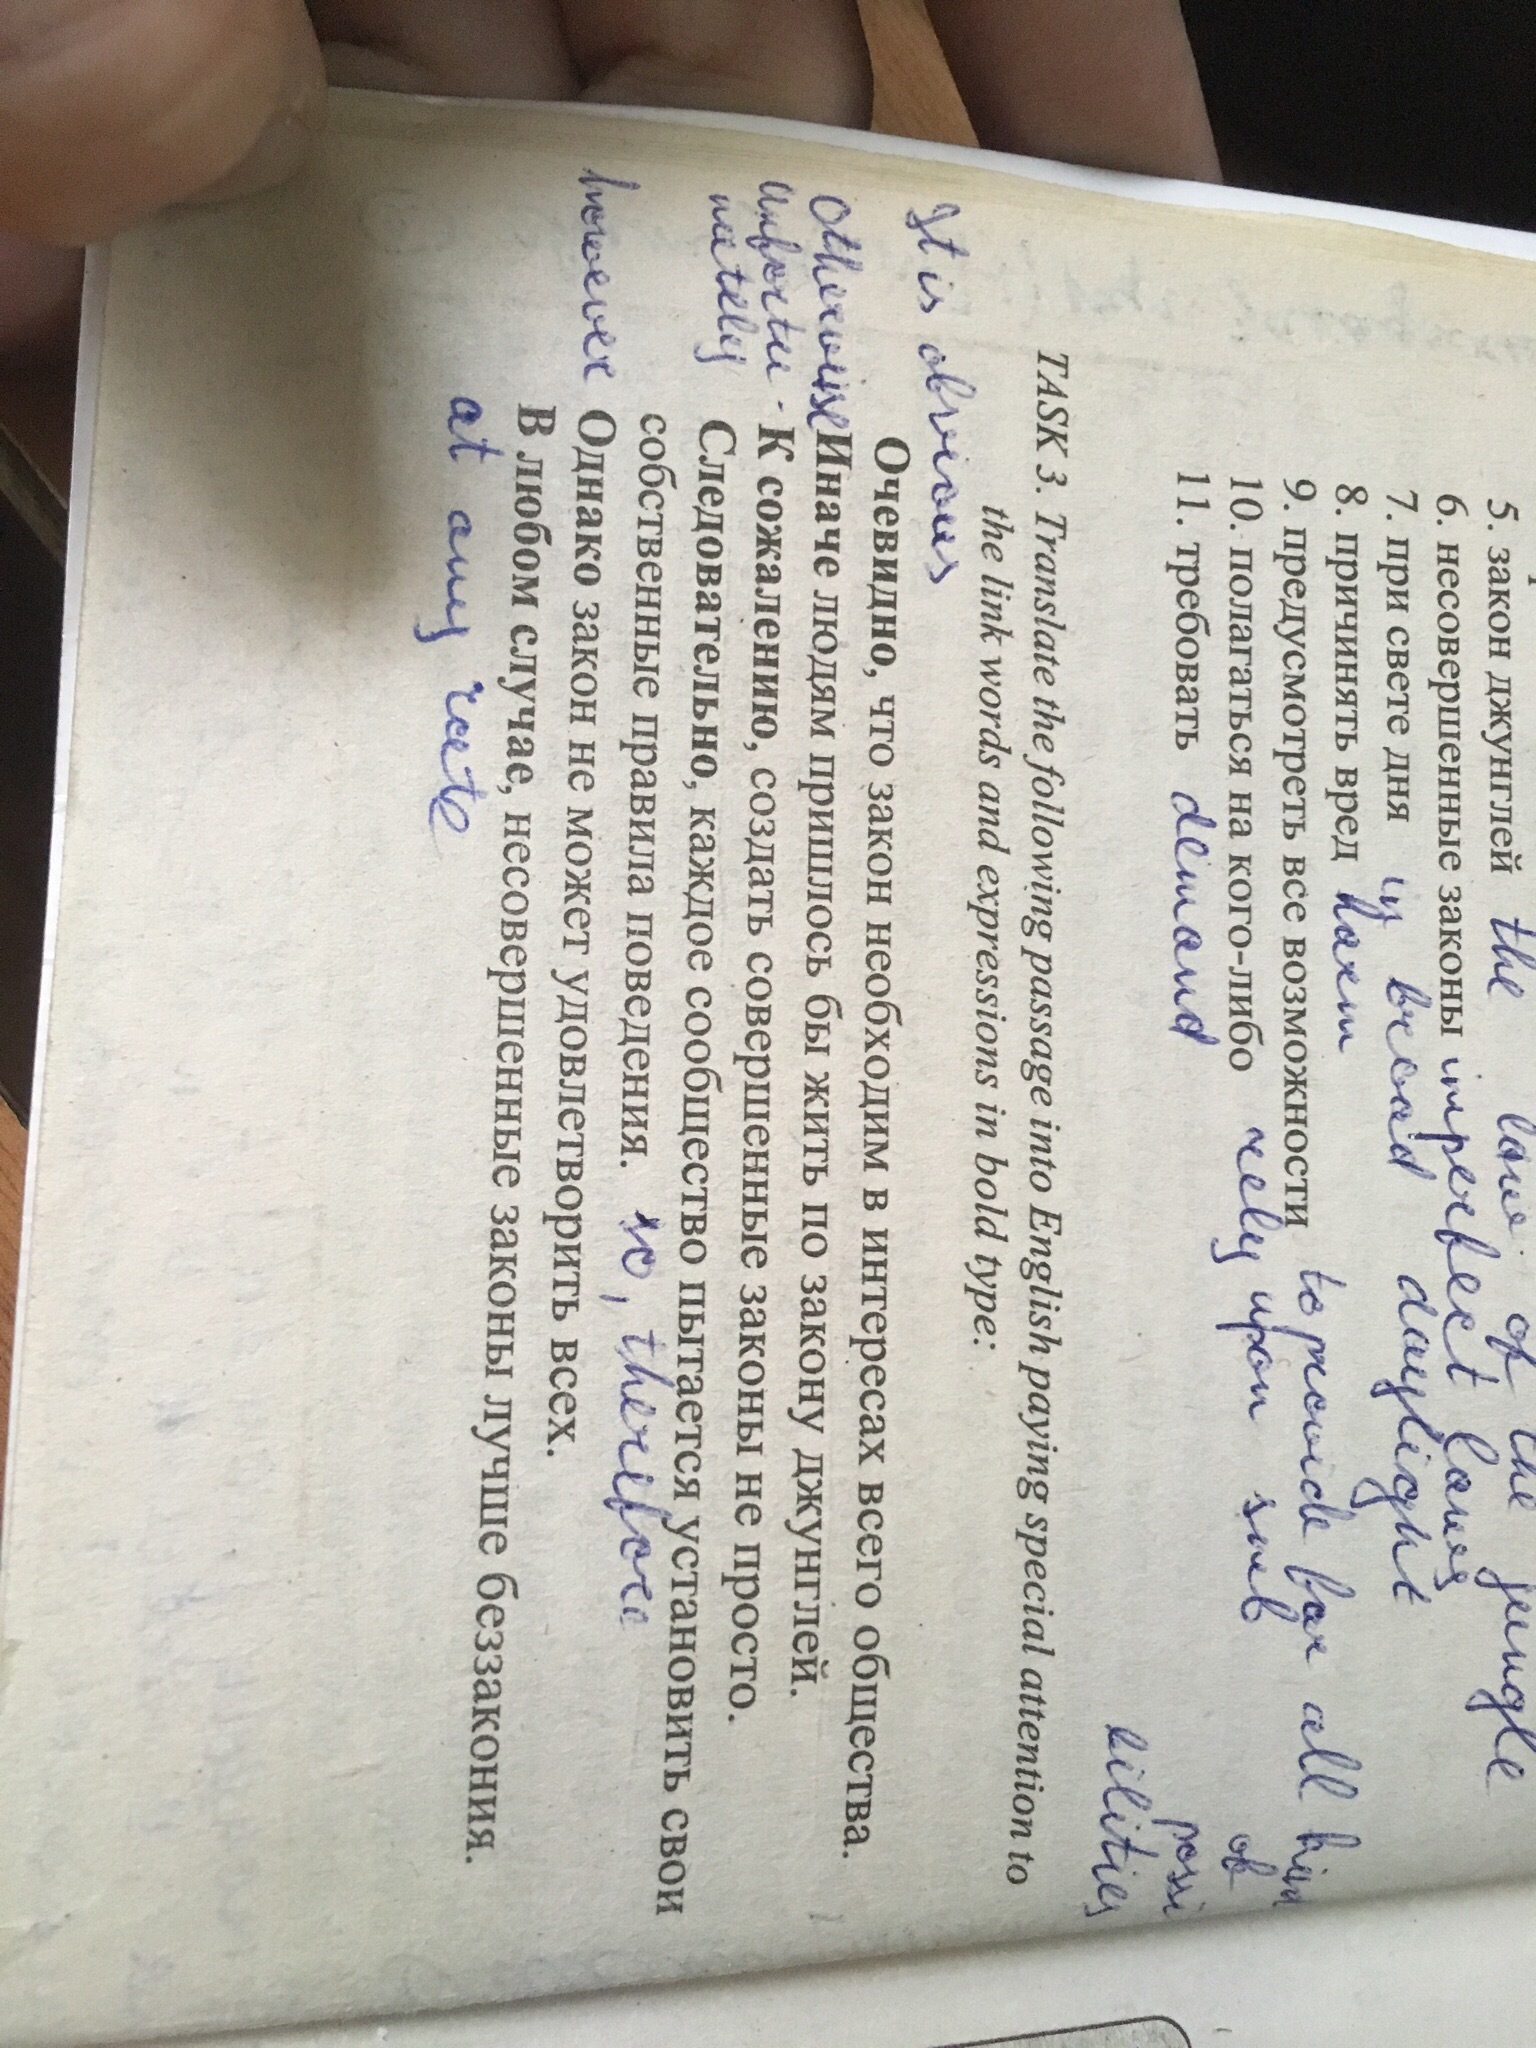 5. закон джунглей the law of the jungle
6. несовершенные законы imperfect laws
7. при свете дня by broad daylight
8. причинять вред harm
9. предусмотреть все возможности to provide for all kin
of
possi
bilities
10. полагаться на кого-либо rely upon smb
11. требовать demand
TASK 3. Translate the following passage into English paying special attention to
the link words and expressions in bold type:
It is obvious
Очевидно, что закон необходим в интересах всего общества.
Otherwise Иначе людям пришлось бы жить по закону джунглей.
unfortu- К сожалению, создать совершенные законы не просто.
nately Следовательно, каждое сообщество пытается установить свои
собственные правила поведения. so, therefore
however Однако закон не может удовлетворить всех.
В любом случае, несовершенные законы лучше беззакония.
at any rate